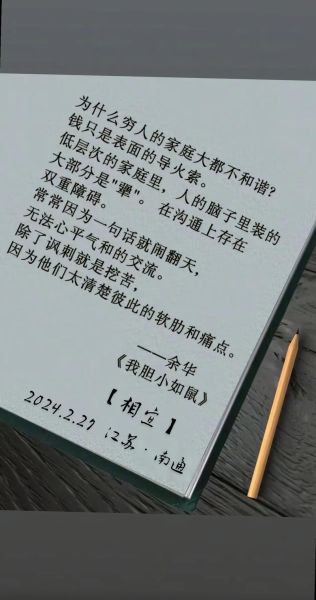 为什么穷人的家庭大都不和谐?
钱只是表面的导火索。
低层次的家庭里，人的脑子里装的
大部分是"犟"。在沟通上存在
双重障碍。
常常因为一句话就闹翻天，
无法心平气和的交流。
除了讽刺就是挖苦，
因为他们太清楚彼此的软肋和痛点。
——余华
《我胆小如鼠》
【相宜】
2024.2.27 江苏·南通